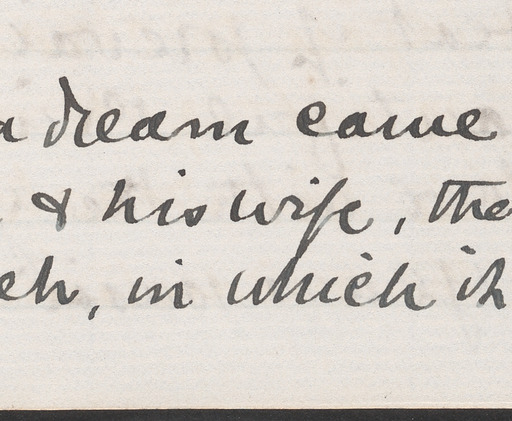 a dream came
& his wife, the
eh, in which it